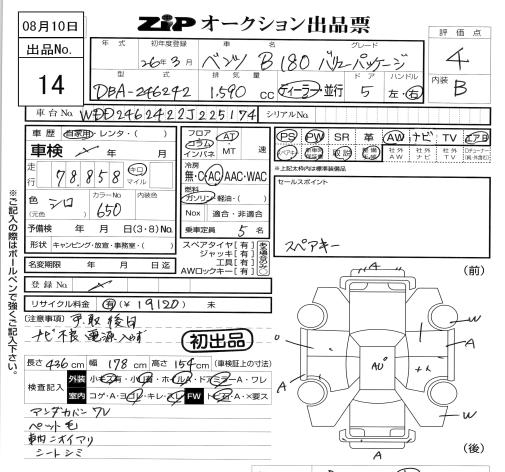 08月10日
ZIP オークション出品票
出品No.
14
年式 初年度登録 車名 グレード 評価点
26年3月 ベンツ B180 バリューパッケージ
4
型式 排気量 ドア ハンドル 内装
DBA-246242 1,590 cc ディーラー・並行 5 左・右 B
車台No. WDD2462422J225174 シリアルNo.
車歴 自家用・レンタ・( ) フロア コラム インパネ AT MT 速
PS PW SR 革 AW ナビ TV エアB
車検 年 月
走行 78,858 キロ マイル
冷房 無・C・AC・AAC・WAC
スペアキー 取説 社外AW 社外ナビ 社外TV
*上記太枠内は標準装備品
燃料 ガソリン・軽油・( )
セールスポイント
色 (元色) シロ カラーNo 650 内装色
Nox 適合・非適合
予備検 年 月 日(3・8)No.
乗車定員 5 名
形状 キャンピング・放宣・事務室・( )
スペアタイヤ[有]
ジャッキ[有]
工具[有]
AWロックキー[有]
スペアキー
名変期限 年 月 日迄
登録No.
リサイクル料金 有(¥ 19120) 未
(前)
[注意事項] 予取後日
ナビ不良 電源入らず
初出品
長さ 436cm 幅 178cm 高さ 154cm (車検証上の寸法)
検査記入 外装 小キズ有・小凹有・ホイルA・ドアミラーA・ワレ
室内 コゲA・ヨゴレ・キレ・スレ FW トビ石・A・X要ス
アンダカバー ワレ
ペット毛
車内ニオイアリ
シートシミ
A W A A AU W A
(後)
※ご記入の際はボールペンで強くご記入下さい。